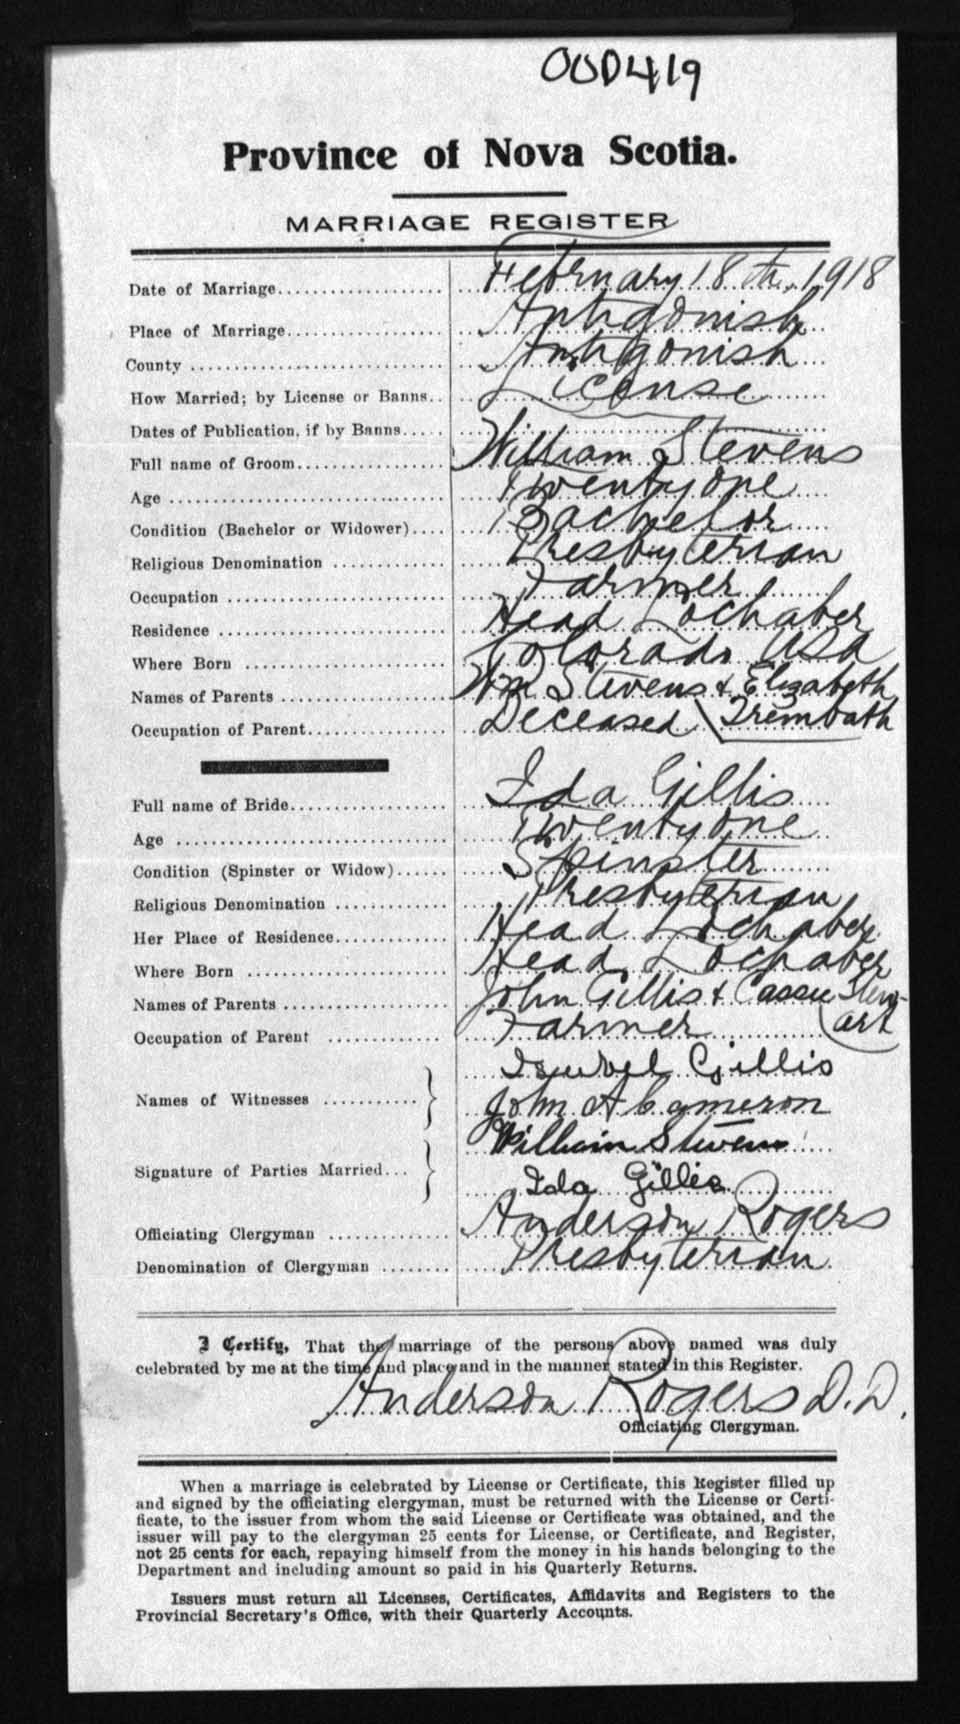 OUD419
Province of Nova Scotia.
MARRIAGE REGISTER
Date of Marriage February 18th, 1918
Place of Marriage Antigonish
County Antigonish
How Married; by License or Banns License
Dates of Publication, if by Banns
Full name of Groom William Stevens
Age Twenty one
Condition (Bachelor or Widower) Bachelor
Religious Denomination Presbyterian
Occupation Farmer
Residence Head Lochaber
Where Born Colorado USA
Names of Parents Wm Stevens & Elizabeth Trembath
Occupation of Parent Deceased
Full name of Bride Ida Gillis
Age Twenty one
Condition (Spinster or Widow) Spinster
Religious Denomination Presbyterian
Her Place of Residence Head Lochaber
Where Born Head Lochaber
Names of Parents John Gillis & Cassie Stewart
Occupation of Parent Farmer
Names of Witnesses Isabel Gillis
John A Cameron
Signature of Parties Married William Stevens
Ida Gillis
Officiating Clergyman Anderson Rogers
Denomination of Clergyman Presbyterian
I Certify, That the marriage of the persons above named was duly
celebrated by me at the time and place and in the manner stated in this Register.
Anderson Rogers D.D.
Officiating Clergyman.
When a marriage is celebrated by License or Certificate, this Register filled up
and signed by the officiating clergyman, must be returned with the License or Certi-
ficate, to the issuer from whom the said License or Certificate was obtained, and the
issuer will pay to the clergyman 25 cents for License, or Certificate, and Register,
not 25 cents for each, repaying himself from the money in his hands belonging to the
Department and including amount so paid in his Quarterly Returns.
Issuers must return all Licenses, Certificates, Affidavits and Registers to the
Provincial Secretary's Office, with their Quarterly Accounts.